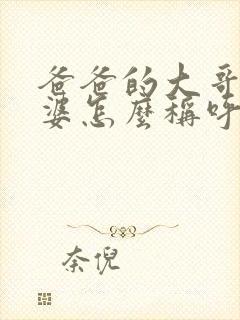 爸爸的大哥
婆怎麼稱呼
奈倪